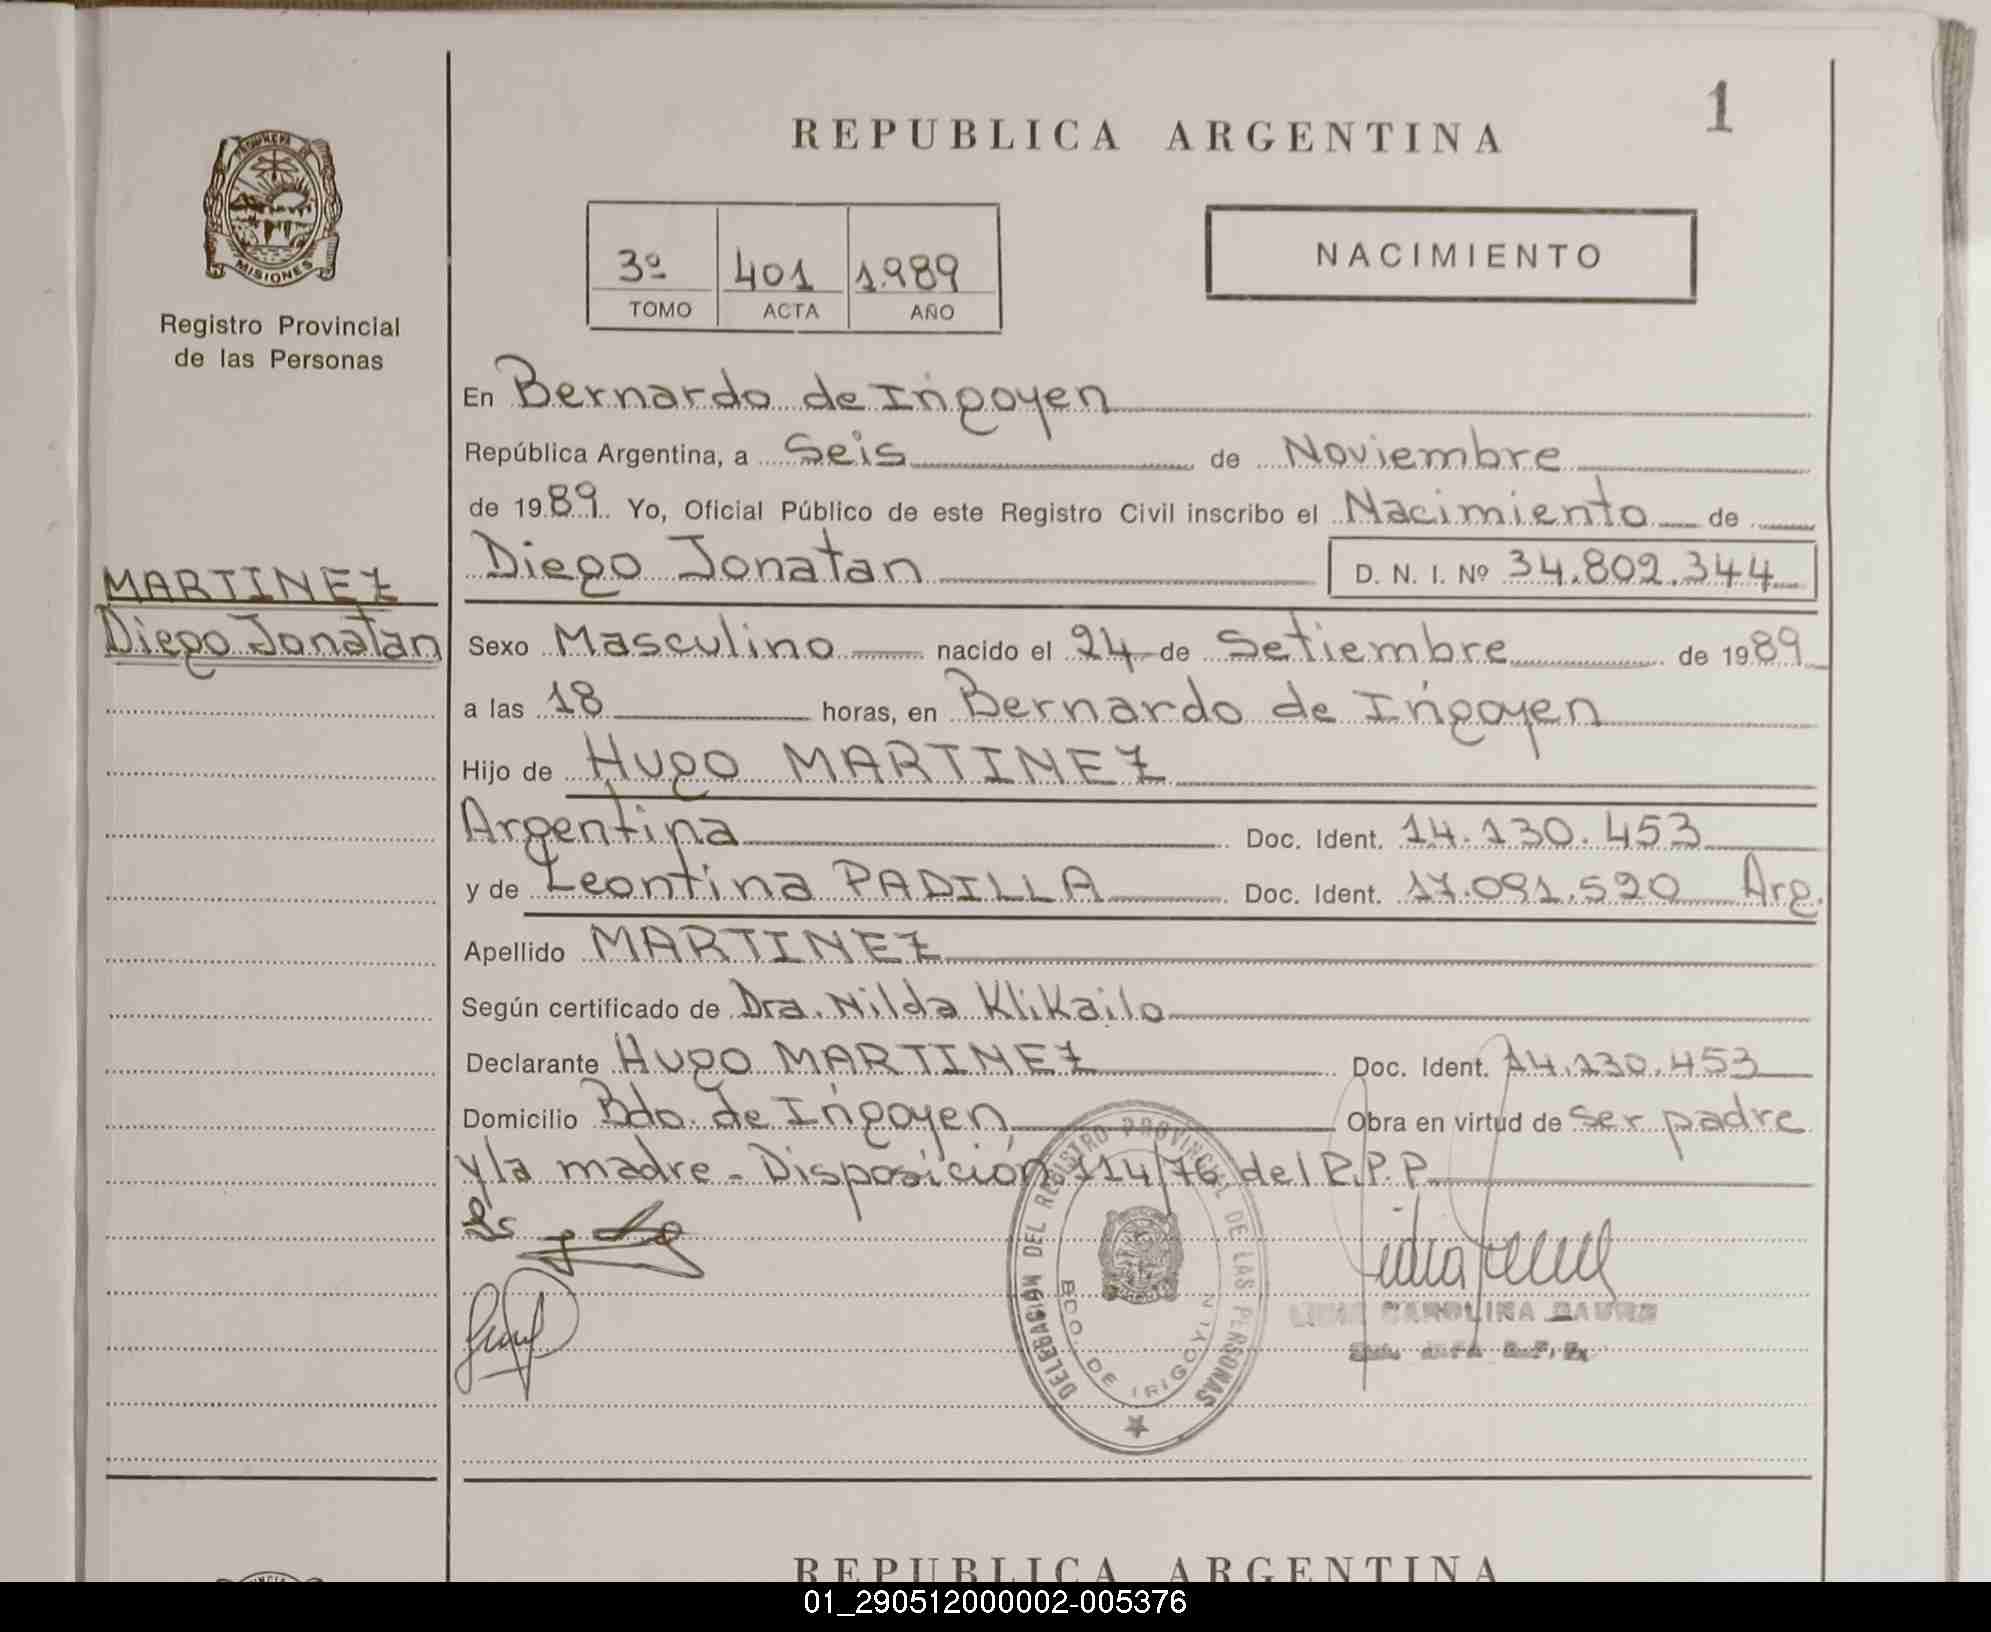 REPUBLICA ARGENTINA
1
PROVINCIA DE
MISIONES
Registro Provincial
de las Personas
3º 401 1.989
TOMO ACTA AÑO
NACIMIENTO
En Bernardo de Irigoyen
República Argentina, a Seis de Noviembre
de 1989. Yo, Oficial Público de este Registro Civil inscribo el Nacimiento de
Diego Jonatan D. N. I. Nº 34.802.344
MARTINEZ
Diego Jonatan
Sexo Masculino nacido el 24 de Setiembre de 1989
a las 18 horas, en Bernardo de Irigoyen
Hijo de Hugo MARTINEZ
Argentina Doc. Ident. 14.130.453
y de Leontina PADILLA Doc. Ident. 17.091.520 Arg.
Apellido MARTINEZ
Según certificado de Dra. Nilda Klikailo
Declarante Hugo MARTINEZ Doc. Ident. 14.130.453
Domicilio Bdo. de Irigoyen Obra en virtud de ser padre
y la madre - Disposición 114/76 del R.P.P.
DELEGACION DEL REGISTRO PROVINCIAL DE LAS PERSONAS
BDO. DE IRIGOYEN
CAROLINA
REPUBLICA ARGENTINA
01_290512000002-005376